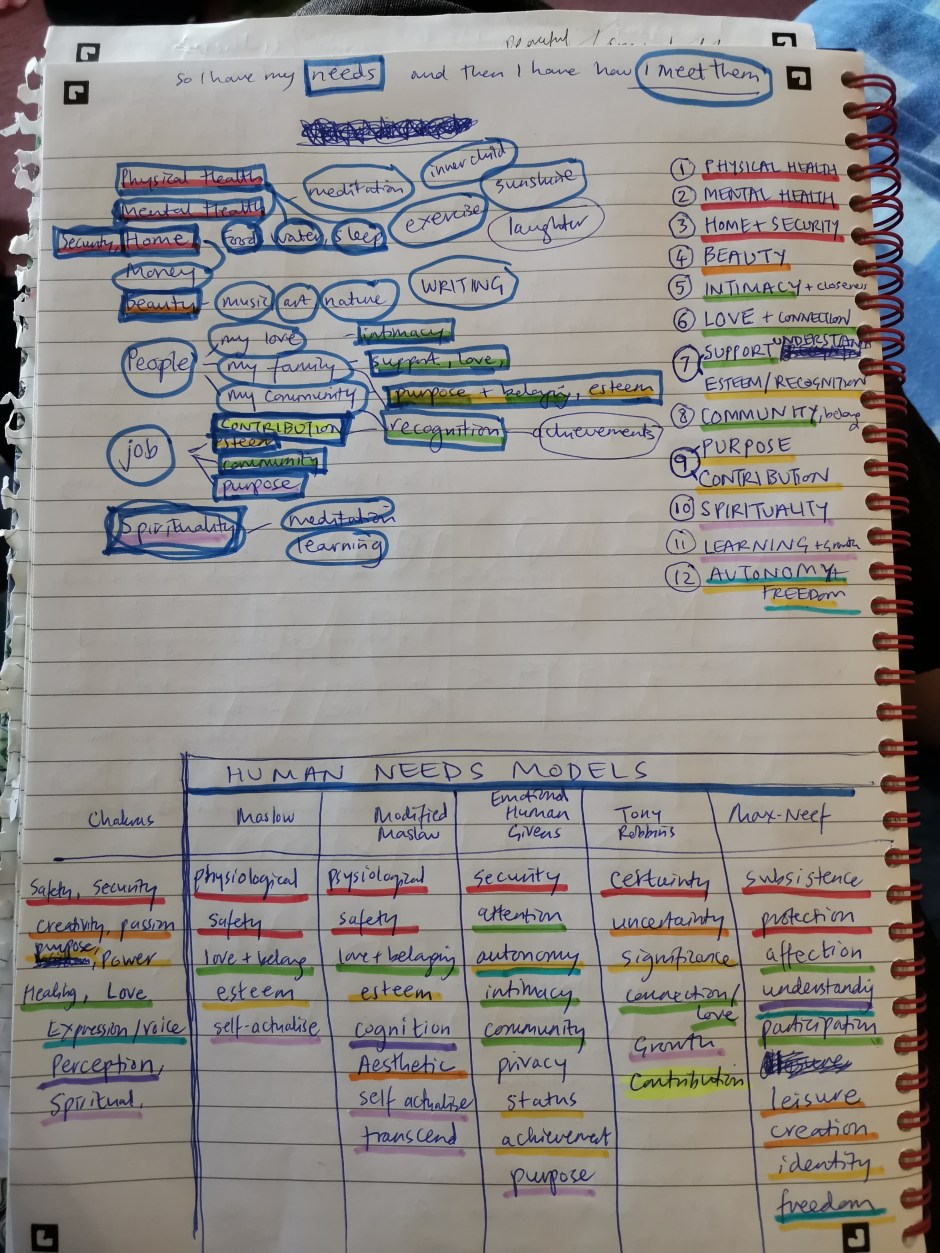 Peaceful /
So I have my needs and then I have how I meet them
Physical Health
Mental Health
Security, Home,
Money
Beauty
meditation
inner child
sunshine
exercise
laughter
food water, sleep
music art nature
WRITING
People
my love
intimacy
my family
support, love,
my community
purpose + belonging, esteem
job
CONTRIBUTION
esteem
community
purpose
recognition
achievements
Spirituality
meditation
learning
1 PHYSICAL HEALTH
2 MENTAL HEALTH
3 HOME + SECURITY
4 BEAUTY
5 INTIMACY + closeness
6 LOVE + CONNECTION
7 SUPPORT UNDERSTAND
ESTEEM/RECOGNITION
8 COMMUNITY, belong
9 PURPOSE
CONTRIBUTION
10 SPIRITUALITY
11 LEARNING + Growth
12 AUTONOMY +
FREEDOM
HUMAN NEEDS MODELS
Chakras
Safety, Security
Creativity, passion
purpose, Power
Healing, Love
Expression/voice
Perception,
Spiritual.
Maslow
physiological
safety
love + belong
esteem
self-actualise
Modified
Maslow
psysiological
safety
love + belonging
esteem
cognition
Aesthetic
self actualise
transcend
Emotional
Human
Givens
security
attention
autonomy
intimacy
community
privacy
status
achievement
purpose
Tony
Robbins
certainty
uncertainty
significance
connection/
love
Growth
Contribution
Max-Neef
subsistence
protection
affection
understanding
participation
leisure
creation
identity
freedom